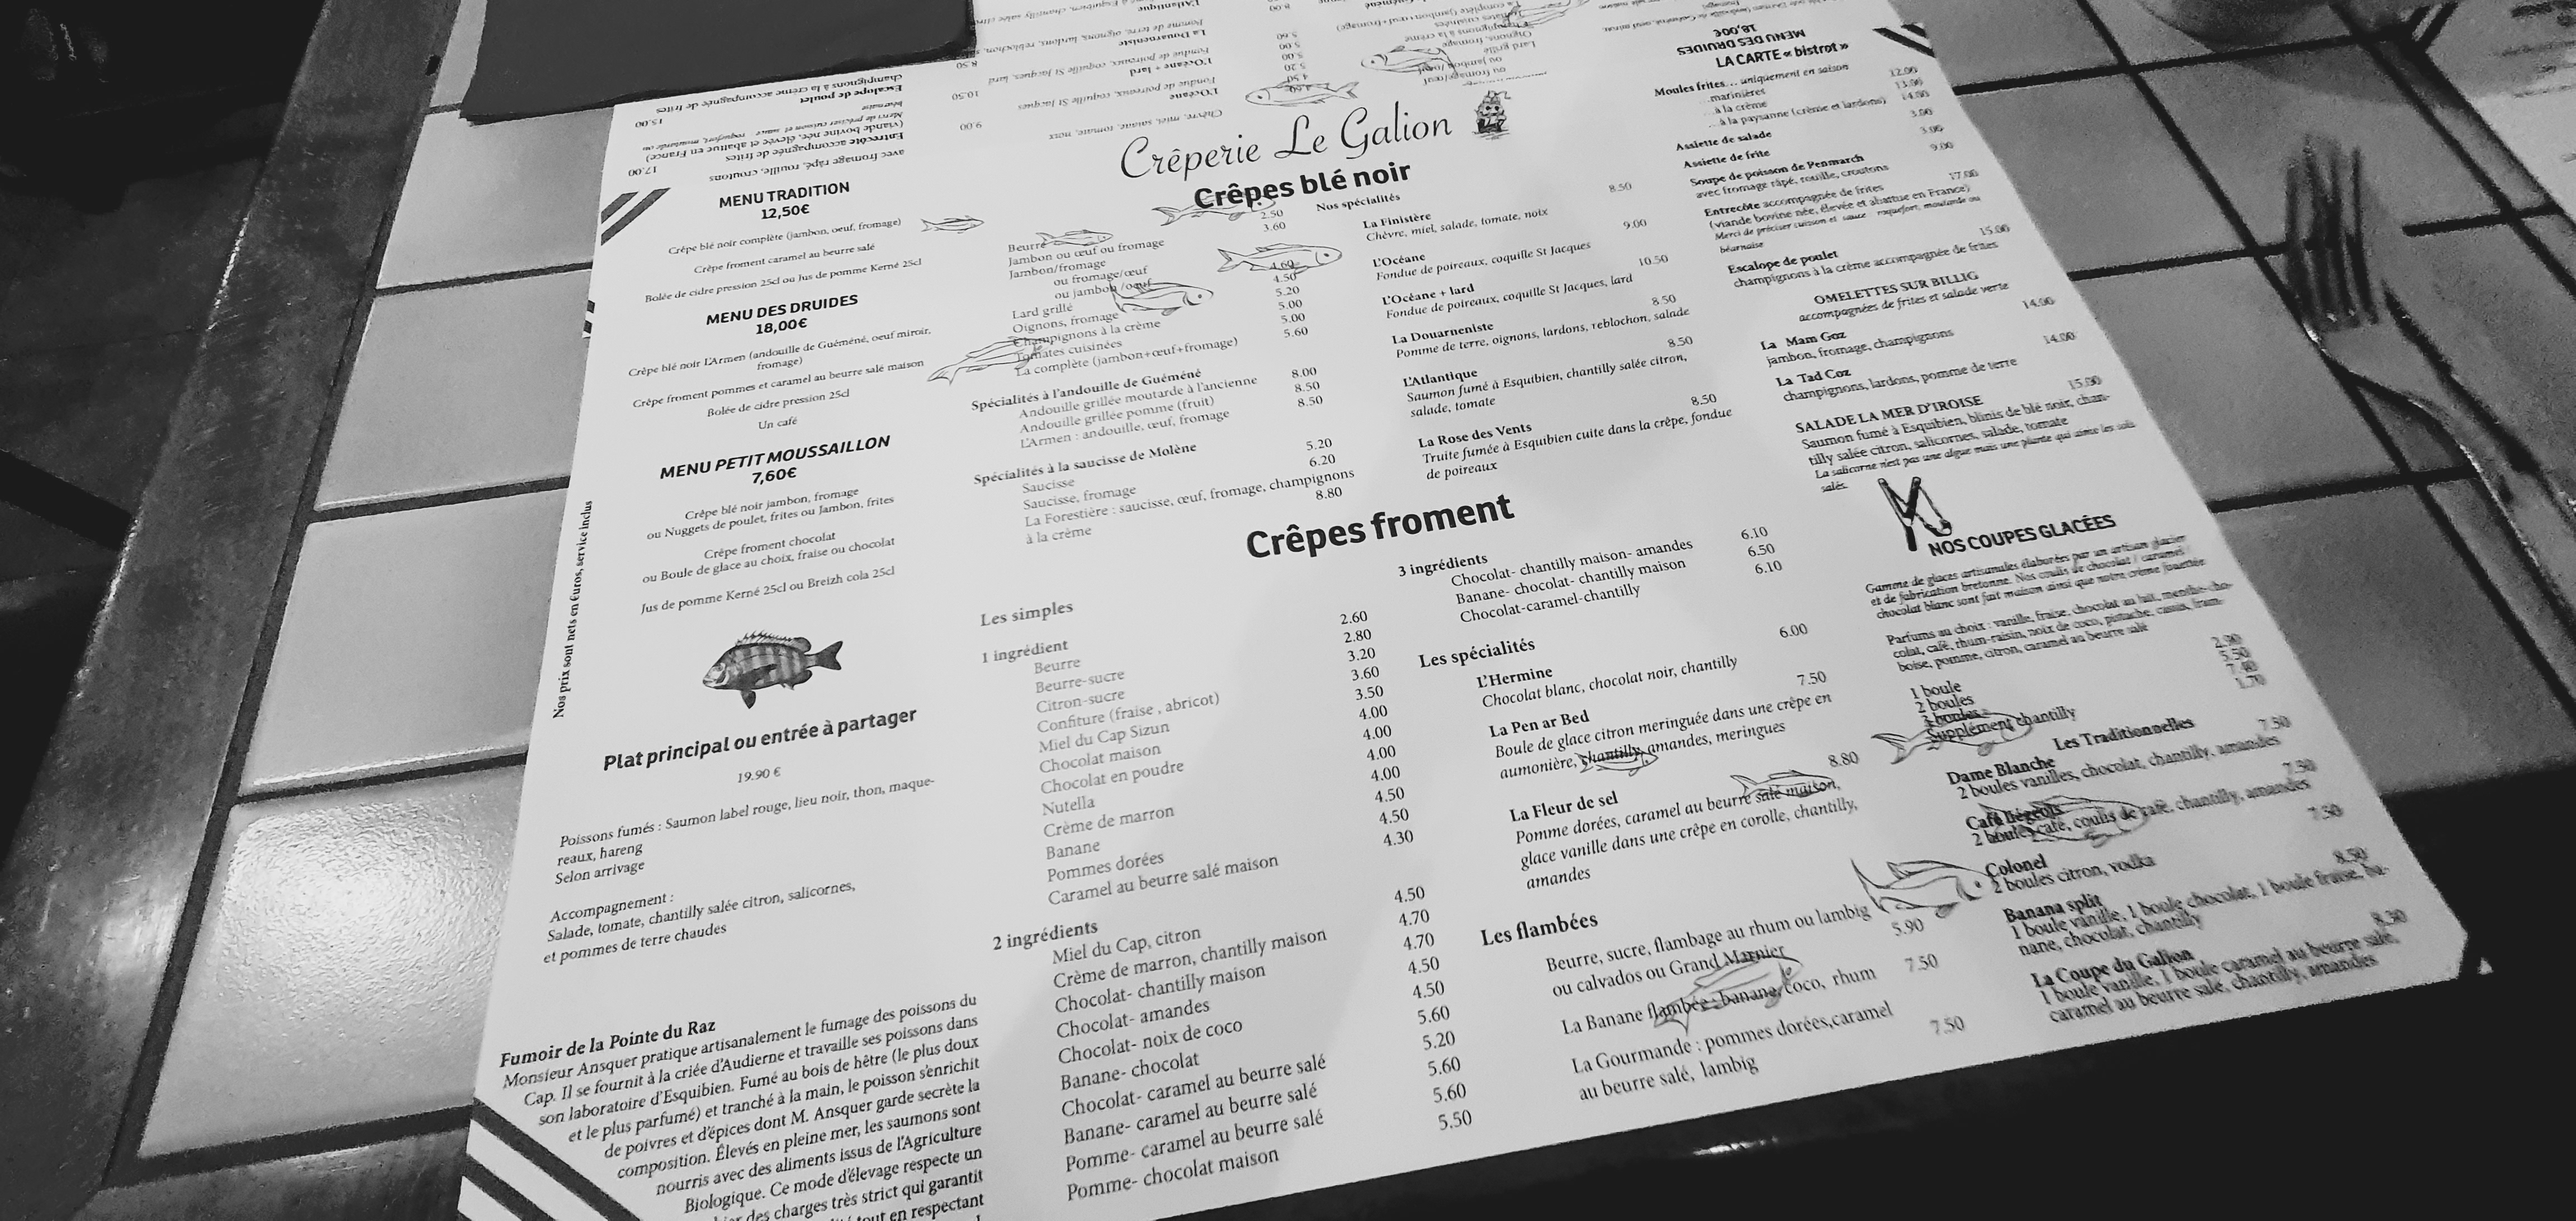 Crêperie Le Galion
MENU TRADITION
12,50€
Crêpe blé noir complète (jambon, oeuf, fromage)
Crêpe froment caramel au beurre salé
Bolée de cidre pression 25cl ou Jus de pomme Kerné 25cl
MENU DES DRUIDES
18,00€
Crêpe blé noir L'Armen (andouille de Guéméné, oeuf miroir,
fromage)
Crêpe froment pommes et caramel au beurre salé maison
Bolée de cidre pression 25cl
Un café
MENU PETIT MOUSSAILLON
7,60€
Crêpe blé noir jambon, fromage
ou Nuggets de poulet, frites ou Jambon, frites
Crêpe froment chocolat
ou Boule de glace au choix, fraise ou chocolat
Jus de pomme Kerné 25cl ou Breizh cola 25cl
Nos prix sont nets en €uros, service inclus
Plat principal ou entrée à partager
19.90 €
Poissons fumés : Saumon label rouge, lieu noir, thon, maque-
reaux, hareng
Selon arrivage
Accompagnement :
Salade, tomate, chantilly salée citron, salicornes,
et pommes de terre chaudes
Fumoir de la Pointe du Raz
Monsieur Ansquer pratique artisanalement le fumage des poissons du
Cap. Il se fournit à la criée d'Audierne et travaille ses poissons dans
son laboratoire d'Esquibien. Fumé au bois de hêtre (le plus doux
et le plus parfumé) et tranché à la main, le poisson s'enrichit
de poivres et d'épices dont M. Ansquer garde secrète la
composition. Élevés en pleine mer, les saumons sont
nourris avec des aliments issus de l'Agriculture
Biologique. Ce mode d'élevage respecte un
des charges très strict qui garantit
tout en respectant
Crêpes blé noir
Beurre 2.50
Jambon ou œuf ou fromage 3.60
Jambon/fromage
ou fromage/œuf
ou jambon /œuf 4.60
Lard grillé 4.50
Oignons, fromage 5.20
Champignons à la crème 5.00
Tomates cuisinées 5.00
La complète (jambon+œuf+fromage) 5.60
Spécialités à l'andouille de Guéméné
Andouille grillée moutarde à l'ancienne 8.00
Andouille grillée pomme (fruit) 8.50
L'Armen : andouille, œuf, fromage 8.50
Spécialités à la saucisse de Molène
Saucisse 5.20
Saucisse, fromage 6.20
La Forestière : saucisse, œuf, fromage, champignons
à la crème 8.80
Nos spécialités
La Finistère 8.50
Chèvre, miel, salade, tomate, noix
L'Océane 9.00
Fondue de poireaux, coquille St Jacques
L'Océane + lard 10.50
Fondue de poireaux, coquille St Jacques, lard
La Douarneniste 8.50
Pomme de terre, oignons, lardons, reblochon, salade
L'Atlantique 8.50
Saumon fumé à Esquibien, chantilly salée citron,
salade, tomate
La Rose des Vents 8.50
Truite fumée à Esquibien cuite dans la crêpe, fondue
de poireaux
Crêpes froment
Les simples
1 ingrédient
Beurre 2.60
Beurre-sucre 2.80
Citron-sucre 3.20
Confiture (fraise , abricot) 3.60
Miel du Cap Sizun 3.50
Chocolat maison 4.00
Chocolat en poudre 4.00
Nutella 4.00
Crème de marron 4.00
Banane 4.50
Pommes dorées 4.50
Caramel au beurre salé maison 4.30
2 ingrédients
Miel du Cap, citron 4.50
Crème de marron, chantilly maison 4.70
Chocolat- chantilly maison 4.70
Chocolat- amandes 4.50
Chocolat- noix de coco 4.50
Banane- chocolat 5.60
Chocolat- caramel au beurre salé 5.20
Banane- caramel au beurre salé 5.60
Pomme- caramel au beurre salé 5.60
Pomme- chocolat maison 5.50
3 ingrédients
Chocolat- chantilly maison- amandes 6.10
Banane- chocolat- chantilly maison 6.50
Chocolat-caramel-chantilly 6.10
Les spécialités
L'Hermine 6.00
Chocolat blanc, chocolat noir, chantilly
La Pen ar Bed 7.50
Boule de glace citron meringuée dans une crêpe en
aumonière, chantilly, amandes, meringues
La Fleur de sel 8.80
Pomme dorées, caramel au beurre salé maison,
glace vanille dans une crêpe en corolle, chantilly,
amandes
Les flambées
Beurre, sucre, flambage au rhum ou lambig
ou calvados ou Grand Marnier 5.90
La Banane flambée : banane, coco, rhum 7.50
La Gourmande : pommes dorées,caramel
au beurre salé, lambig 7.50
LA CARTE « bistrot »
Moules frites... uniquement en saison
...marinières 12.00
...à la crème 13.00
...à la paysanne (crème et lardons) 14.00
Assiette de salade 3.00
Assiette de frite 3.00
Soupe de poisson de Penmarch 9.00
avec fromage râpé, rouille, croutons
Entrecôte accompagnée de frites 17.00
(viande bovine née, élevée et abattue en France)
Merci de préciser cuisson et sauce roquefort, moutarde ou
béarnaise
Escalope de poulet 15.00
champignons à la crème accompagnée de frites
OMELETTES SUR BILLIG
accompagnées de frites et salade verte
La Mam Goz 14.00
jambon, fromage, champignons
La Tad Coz 14.00
champignons, lardons, pomme de terre
SALADE LA MER D'IROISE 15.00
Saumon fumé à Esquibien, blinis de blé noir, chan-
tilly salée citron, salicornes, salade, tomate
La salicorne n'est pas une algue mais une plante qui aime les sols
salés.
NOS COUPES GLACÉES
Gamme de glaces artisanales élaborées par un artisan glacier
et de fabrication bretonne. Nos coulis de chocolat / caramel /
chocolat blanc sont fait maison ainsi que notre crème fouettée
Parfums au choix : vanille, fraise, chocolat au lait, menthe-cho-
colat, café, rhum-raisin, noix de coco, pistache, cassis, fram-
boise, pomme, citron, caramel au beurre salé
1 boule 2.90
2 boules 5.50
3 boules 7.40
Supplément chantilly 1.70
Les Traditionnelles
Dame Blanche 7.50
2 boules vanilles, chocolat, chantilly, amandes
Café liégeois 7.50
2 boules café, coulis de café, chantilly, amandes
Colonel 7.50
2 boules citron, vodka
Banana split 8.50
1 boule vanille, 1 boule chocolat, 1 boule fraise, ba-
nane, chocolat, chantilly
La Coupe du Galion 8.30
1 boule vanille, 1 boule caramel au beurre salé,
caramel au beurre salé, chantilly, amandes